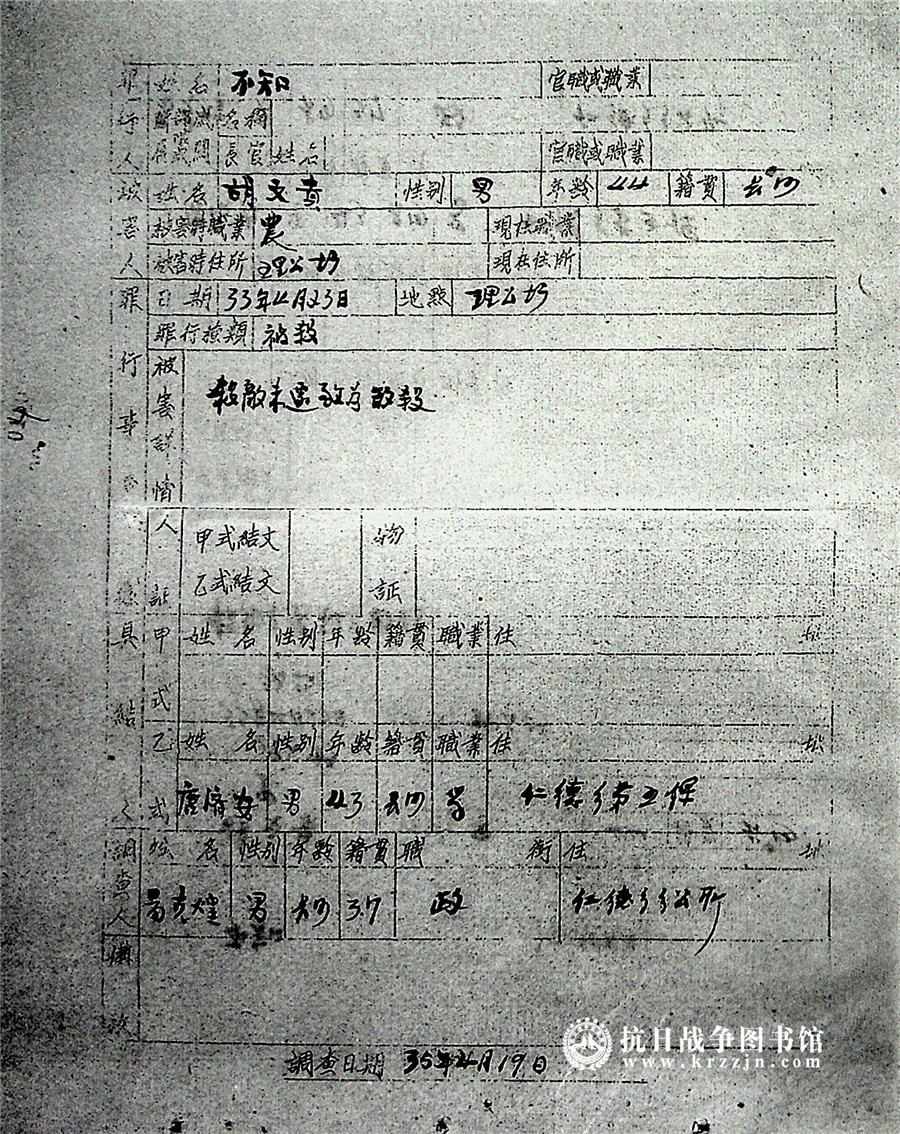 罪行人 姓名 不知 官職或職業
所屬 部隊 機關 名稱
長官姓名 官職或職業
被害人 姓名 胡文貴 性别 男 年齡 44 籍貫
被害時職業 農 現在職業
被害時住所 理公坊 現在住所
罪行事 日期 33年4月23日 地點 理公坊
罪行種類 被殺
被害詳情
人証 甲式結文 物証
乙式結文
具結
甲式 姓名 性别 年齡 籍貫 職業 住址
乙式 姓名 性别 年齡 籍貫 職業 住址
唐濟安 男 43 仁德乡第五保
調查人 姓名 性别 年齡 籍貫 職銜 住址
男 37 政 仁德乡乡公所
備考
調查日期 35年4月19日
抗日战争图书馆
www.krzzjn.com